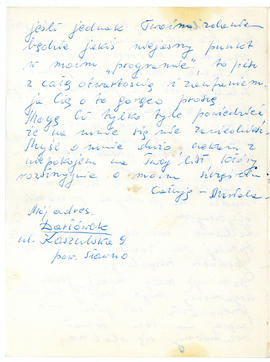 jeśli jednak Twoim zdaniem
będzie jakiś niejasny punkt
w moim „programie”, to pisz
z całą otwartością i zaufaniem,
ja Cię o to gorąco proszę
Mogę Ci tylko tyle powiedzieć
że na mnie się nie zawiedziesz
Myśl o mnie dużo, czekam z
niepokojem na Twój list, który
rozstrzygnie o moim szczęściu
Całuję –
Mój adres.
Darłówek
ul. Kaszubska 9
pow. Sławno